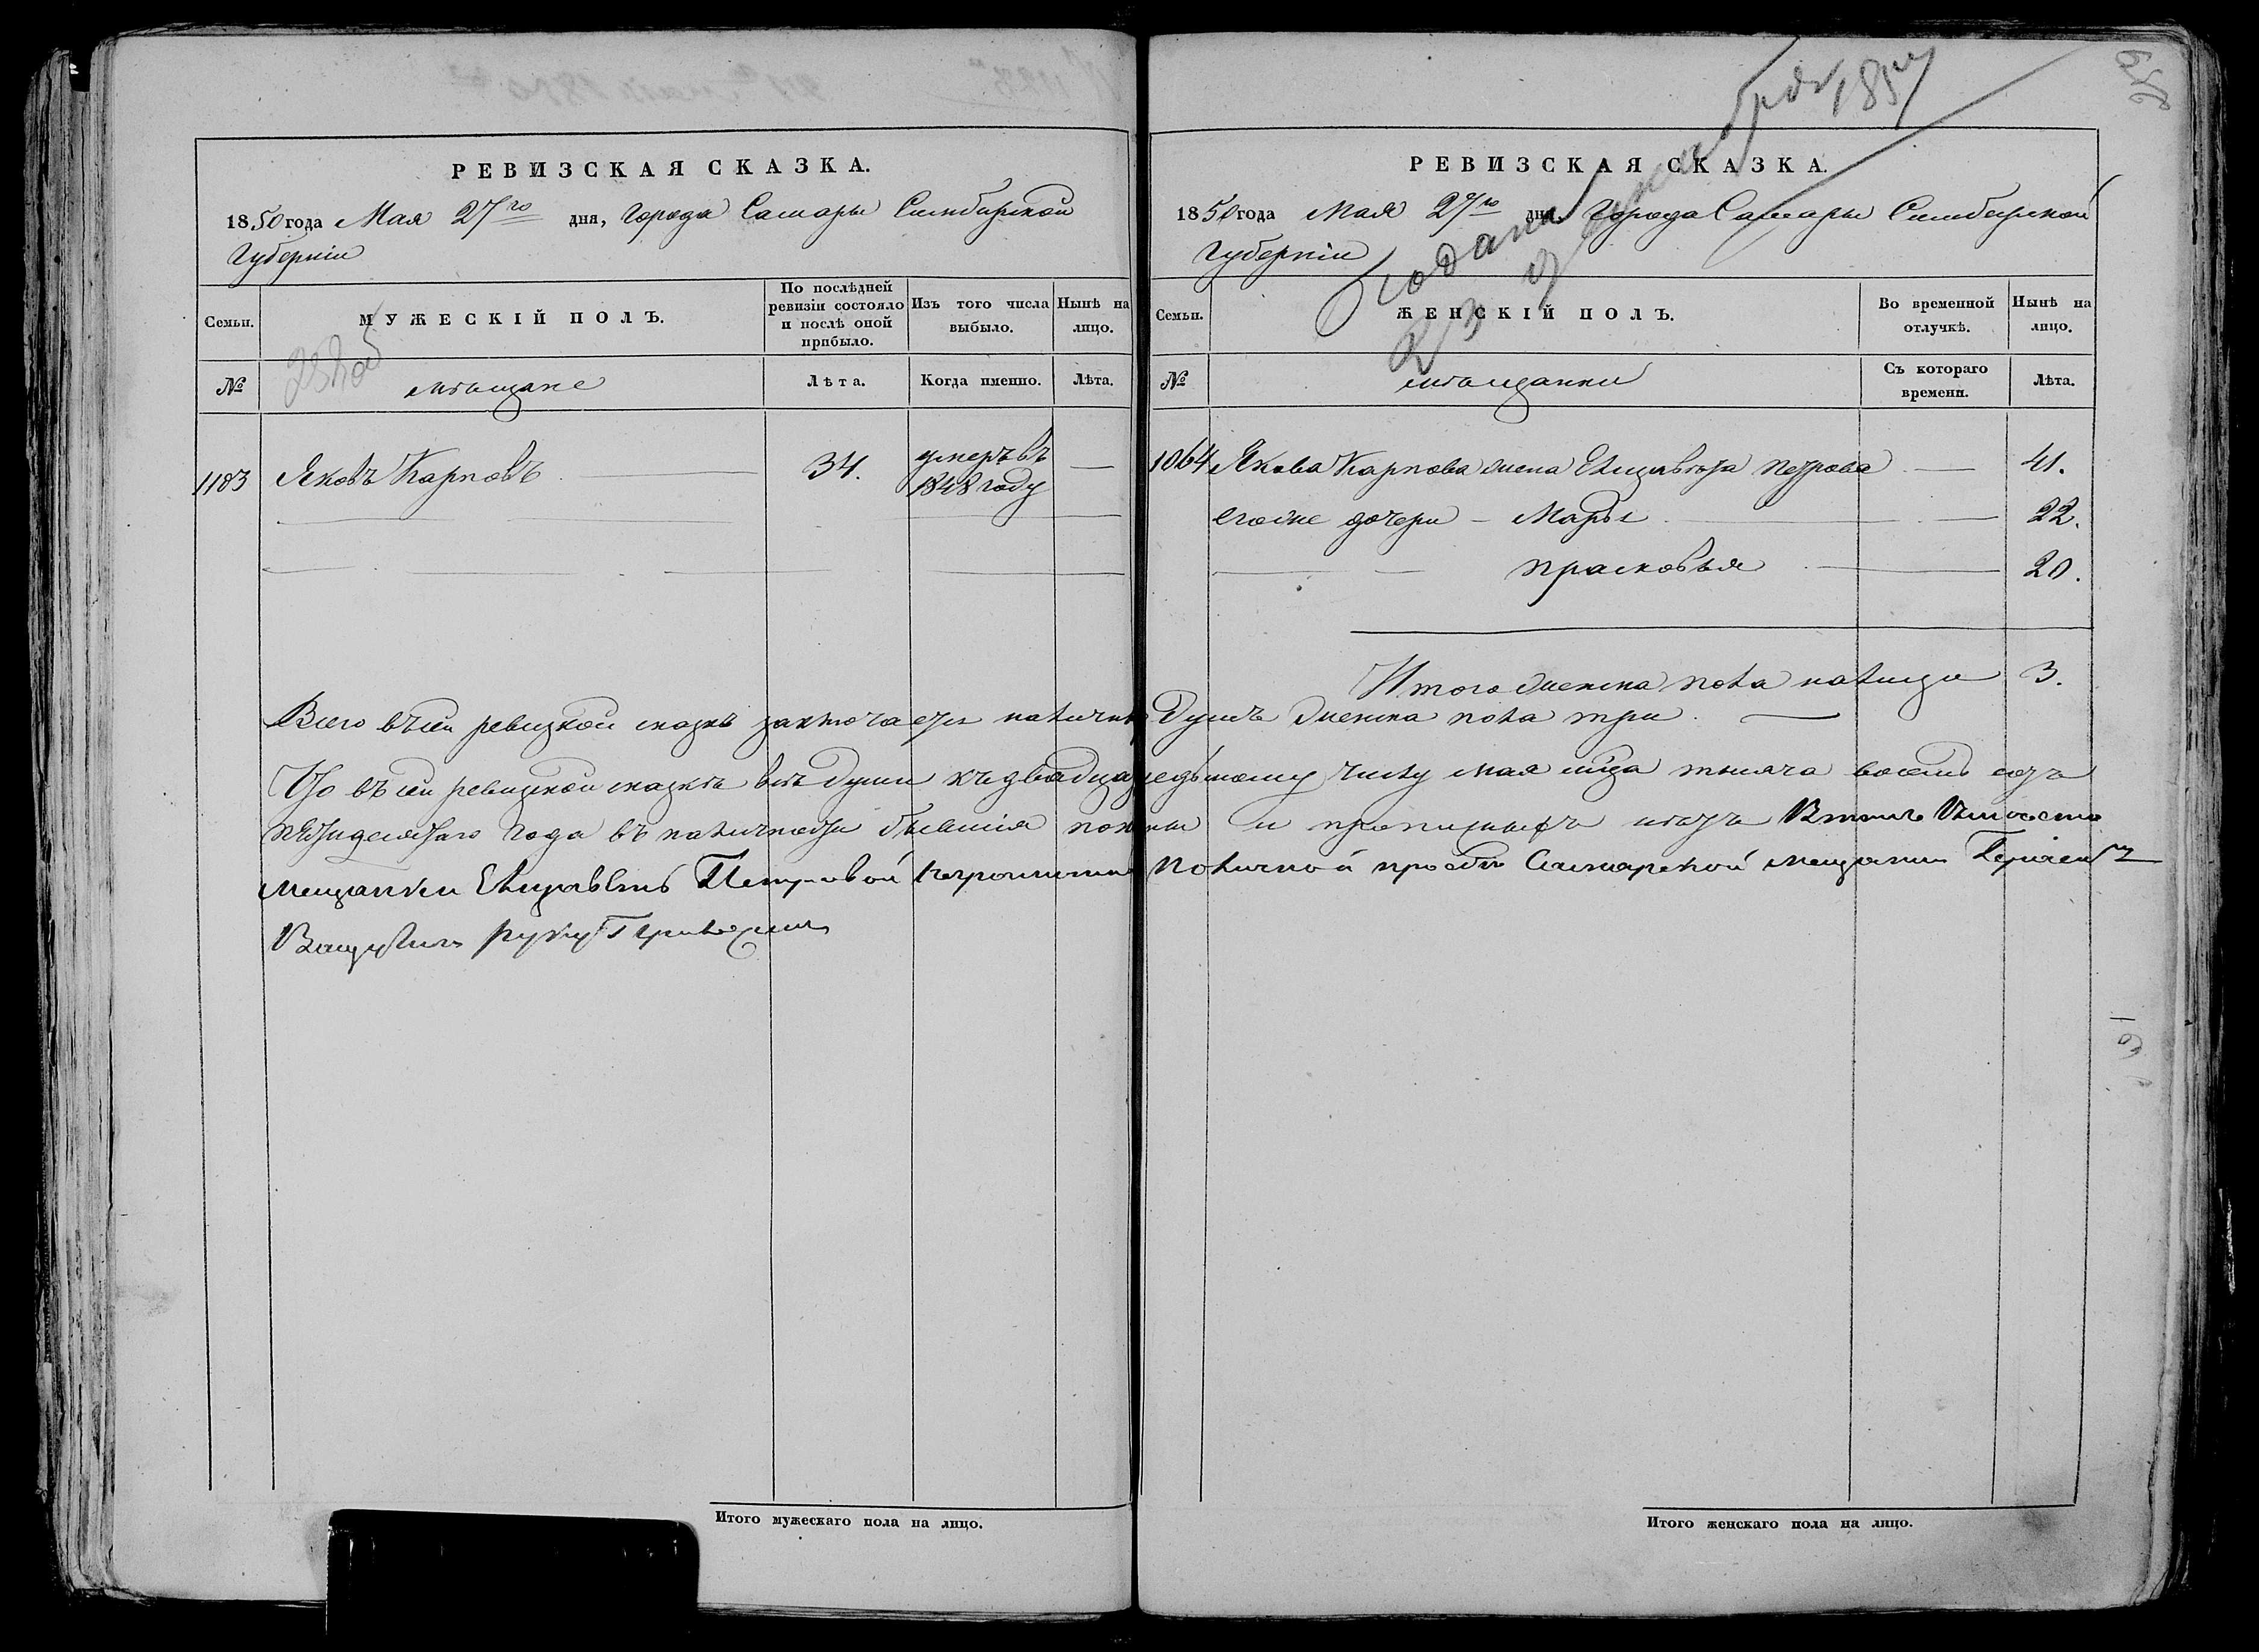 РЕВИЗСКАЯ СКАЗКА.
1850 года Мая 27го дня, города Самары Симбирской
Губерніи
Семьи.
МУЖЕСКІЙ ПОЛЪ.
По послѣдней ревизіи состояло и послѣ оной прибыло.
Изъ того числа выбыло.
Нынѣ на лицо.
№
мѣщане
Лѣта.
Когда именно.
Лѣта.
1183 Яковъ Карповъ 34. умеръ въ 1848 году
РЕВИЗСКАЯ СКАЗКА.
1850 года Мая 27го дня, города Самары Симбирской
Губерніи
Подана 23
Семьи.
ЖЕНСКІЙ ПОЛЪ.
Во временной отлучкѣ.
Нынѣ на лицо.
№
мѣщанки
Съ котораго времени.
Лѣта.
1064 Якова Карпова жена Елизавета Петрова 41.
его же дочери – Марья 22.
Прасковья 20.
Итого женска пола налицо 3.
Всего въ сей ревизкой сказкѣ заключается наличныхъ душъ женска пола три.
Что въ сей ревизкой сказкѣ всѣ души къ двадцать седьмому числу мая мѣца тысяча восемь сотъ
пятидесятаго года въ наличности бывшія показаны и прописныхъ нѣтъ В томъ Вместо
мещанки Елизаветы Петровой неграмотной по личной прозбе Самарской мещанин
руку Приложилъ
Итого мужескаго пола на лицо.
Итого женскаго пола на лицо.